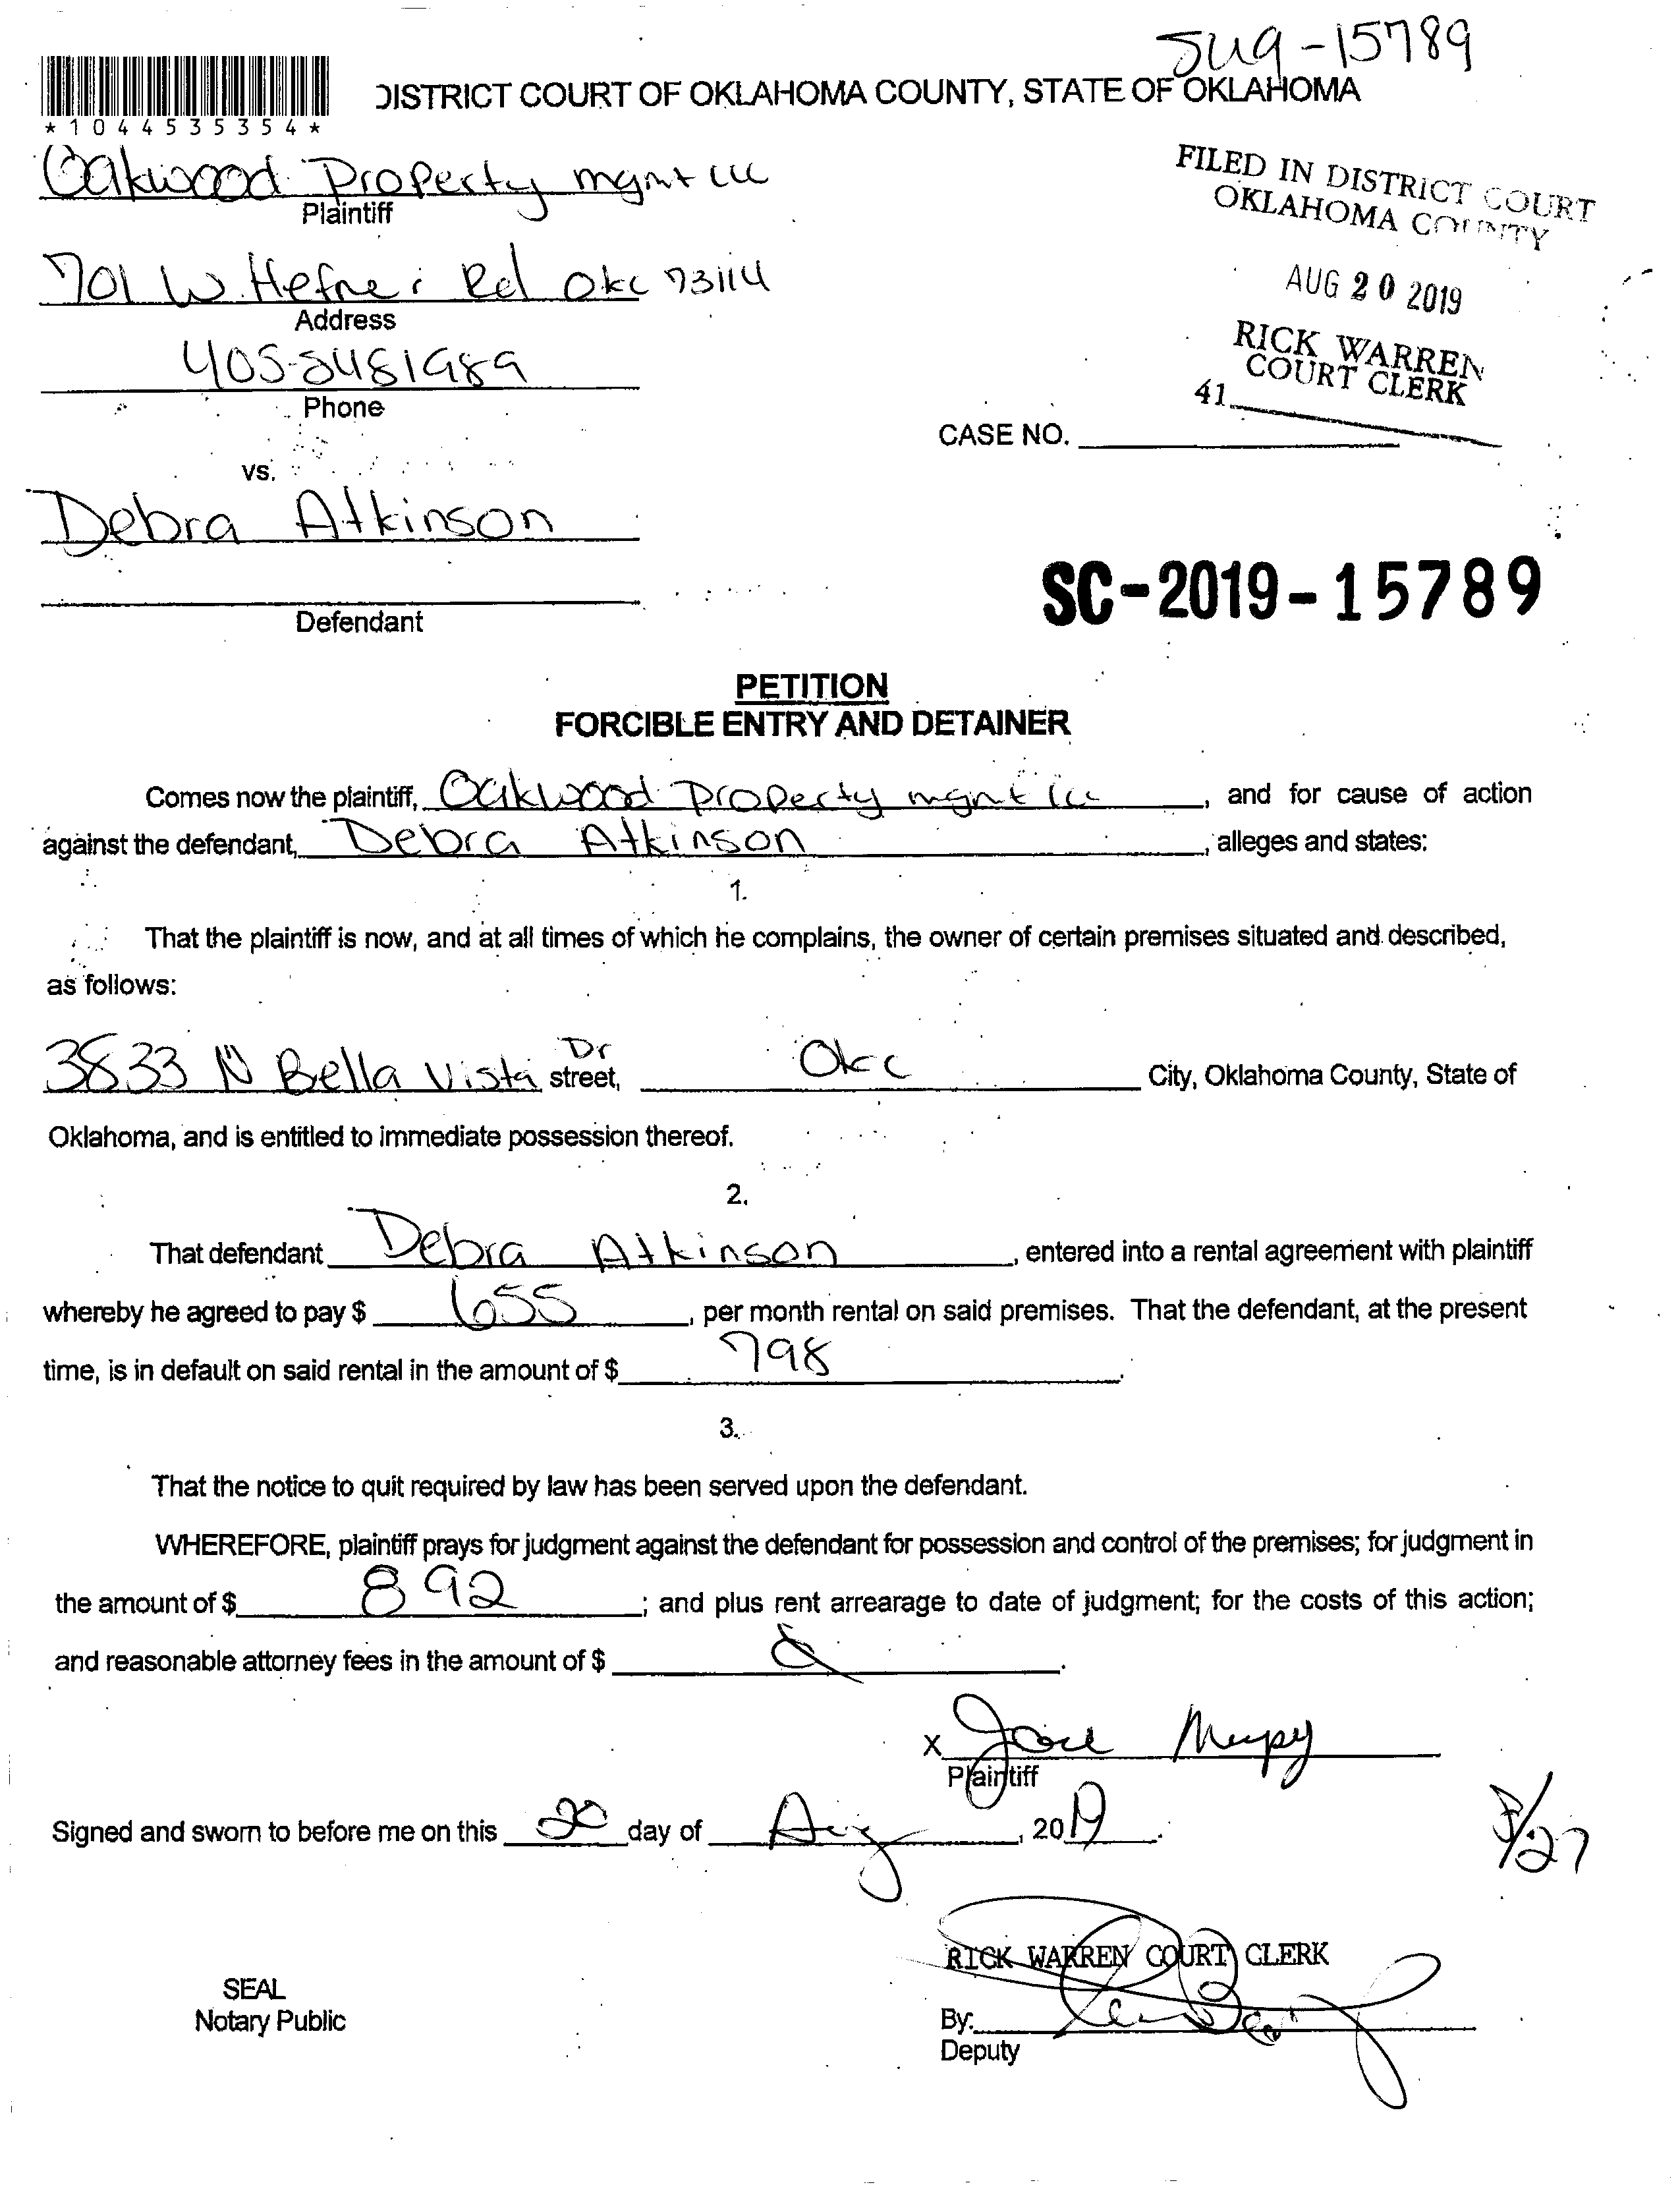 -15789
DISTRICT COURT OF OKLAHOMA COUNTY, STATE OF OKLAHOMA
*1044535354*
Oakwood Property mgmt llc
Plaintiff
FILED IN DISTRICT COURT
OKLAHOMA COUNTY
701 W. Hefner Rd Okc 73114
Address
AUG 20 2019
RICK WARREN
COURT CLERK
41
Phone
CASE NO.
vs.
Debra Atkinson
SC-2019-15789
Defendant
PETITION
FORCIBLE ENTRY AND DETAINER
Comes now the plaintiff, Oakwood Property mgnt llc, and for cause of action
against the defendant, Debra Atkinson, alleges and states:
1.
That the plaintiff is now, and at all times of which he complains, the owner of certain premises situated and described,
as follows:
3833 N Bella Vista Dr street, Okc City, Oklahoma County, State of
Oklahoma, and is entitled to immediate possession thereof.
2.
That defendant Debra Atkinson, entered into a rental agreement with plaintiff
whereby he agreed to pay $ 655, per month rental on said premises. That the defendant, at the present
time, is in default on said rental in the amount of $ 798.
3.
That the notice to quit required by law has been served upon the defendant.
WHEREFORE, plaintiff prays for judgment against the defendant for possession and control of the premises; for judgment in
the amount of $ 892; and plus rent arrearage to date of judgment; for the costs of this action;
and reasonable attorney fees in the amount of $
X
Plaintiff
Signed and sworn to before me on this 20 day of Aug, 2019.
8/27
RICK WARREN COURT CLERK
SEAL
Notary Public
By:
Deputy